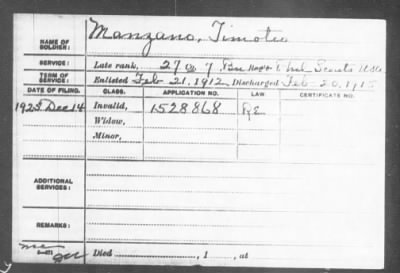 NAME OF SOLDIER: Manzano, Timoteo
SERVICE: Late rank, 27 Co 7 Bn Reg't Phil Scouts USA
TERM OF SERVICE: Enlisted Feb 21, 1912 Discharged Feb 20, 1915
DATE OF FILING. CLASS. APPLICATION NO. LAW CERTIFICATE NO.
1925 Dec 14 Invalid, 1528868
Widow,
Minor,
ADDITIONAL SERVICES:
REMARKS:
Died , 1 , at